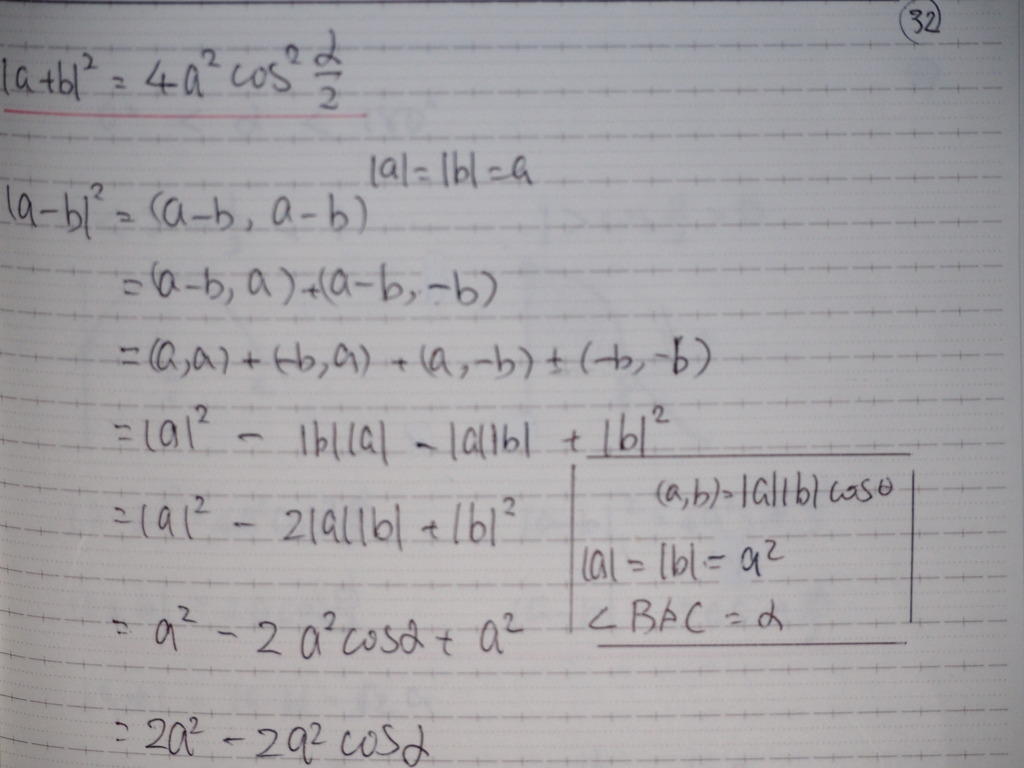 32
|a+b|² = 4a² cos² α/2
|a| = |b| = a
|a-b|² = (a-b, a-b)
= (a-b, a) + (a-b, -b)
= (a,a) + (-b,a) + (a,-b) + (-b,-b)
= |a|² - |b||a| - |a||b| + |b|²
= |a|² - 2|a||b| + |b|²
(a,b) = |a||b| cosθ
|a| = |b| = a²
∠BAC = α
= a² - 2a² cosα + a²
= 2a² - 2a² cosα